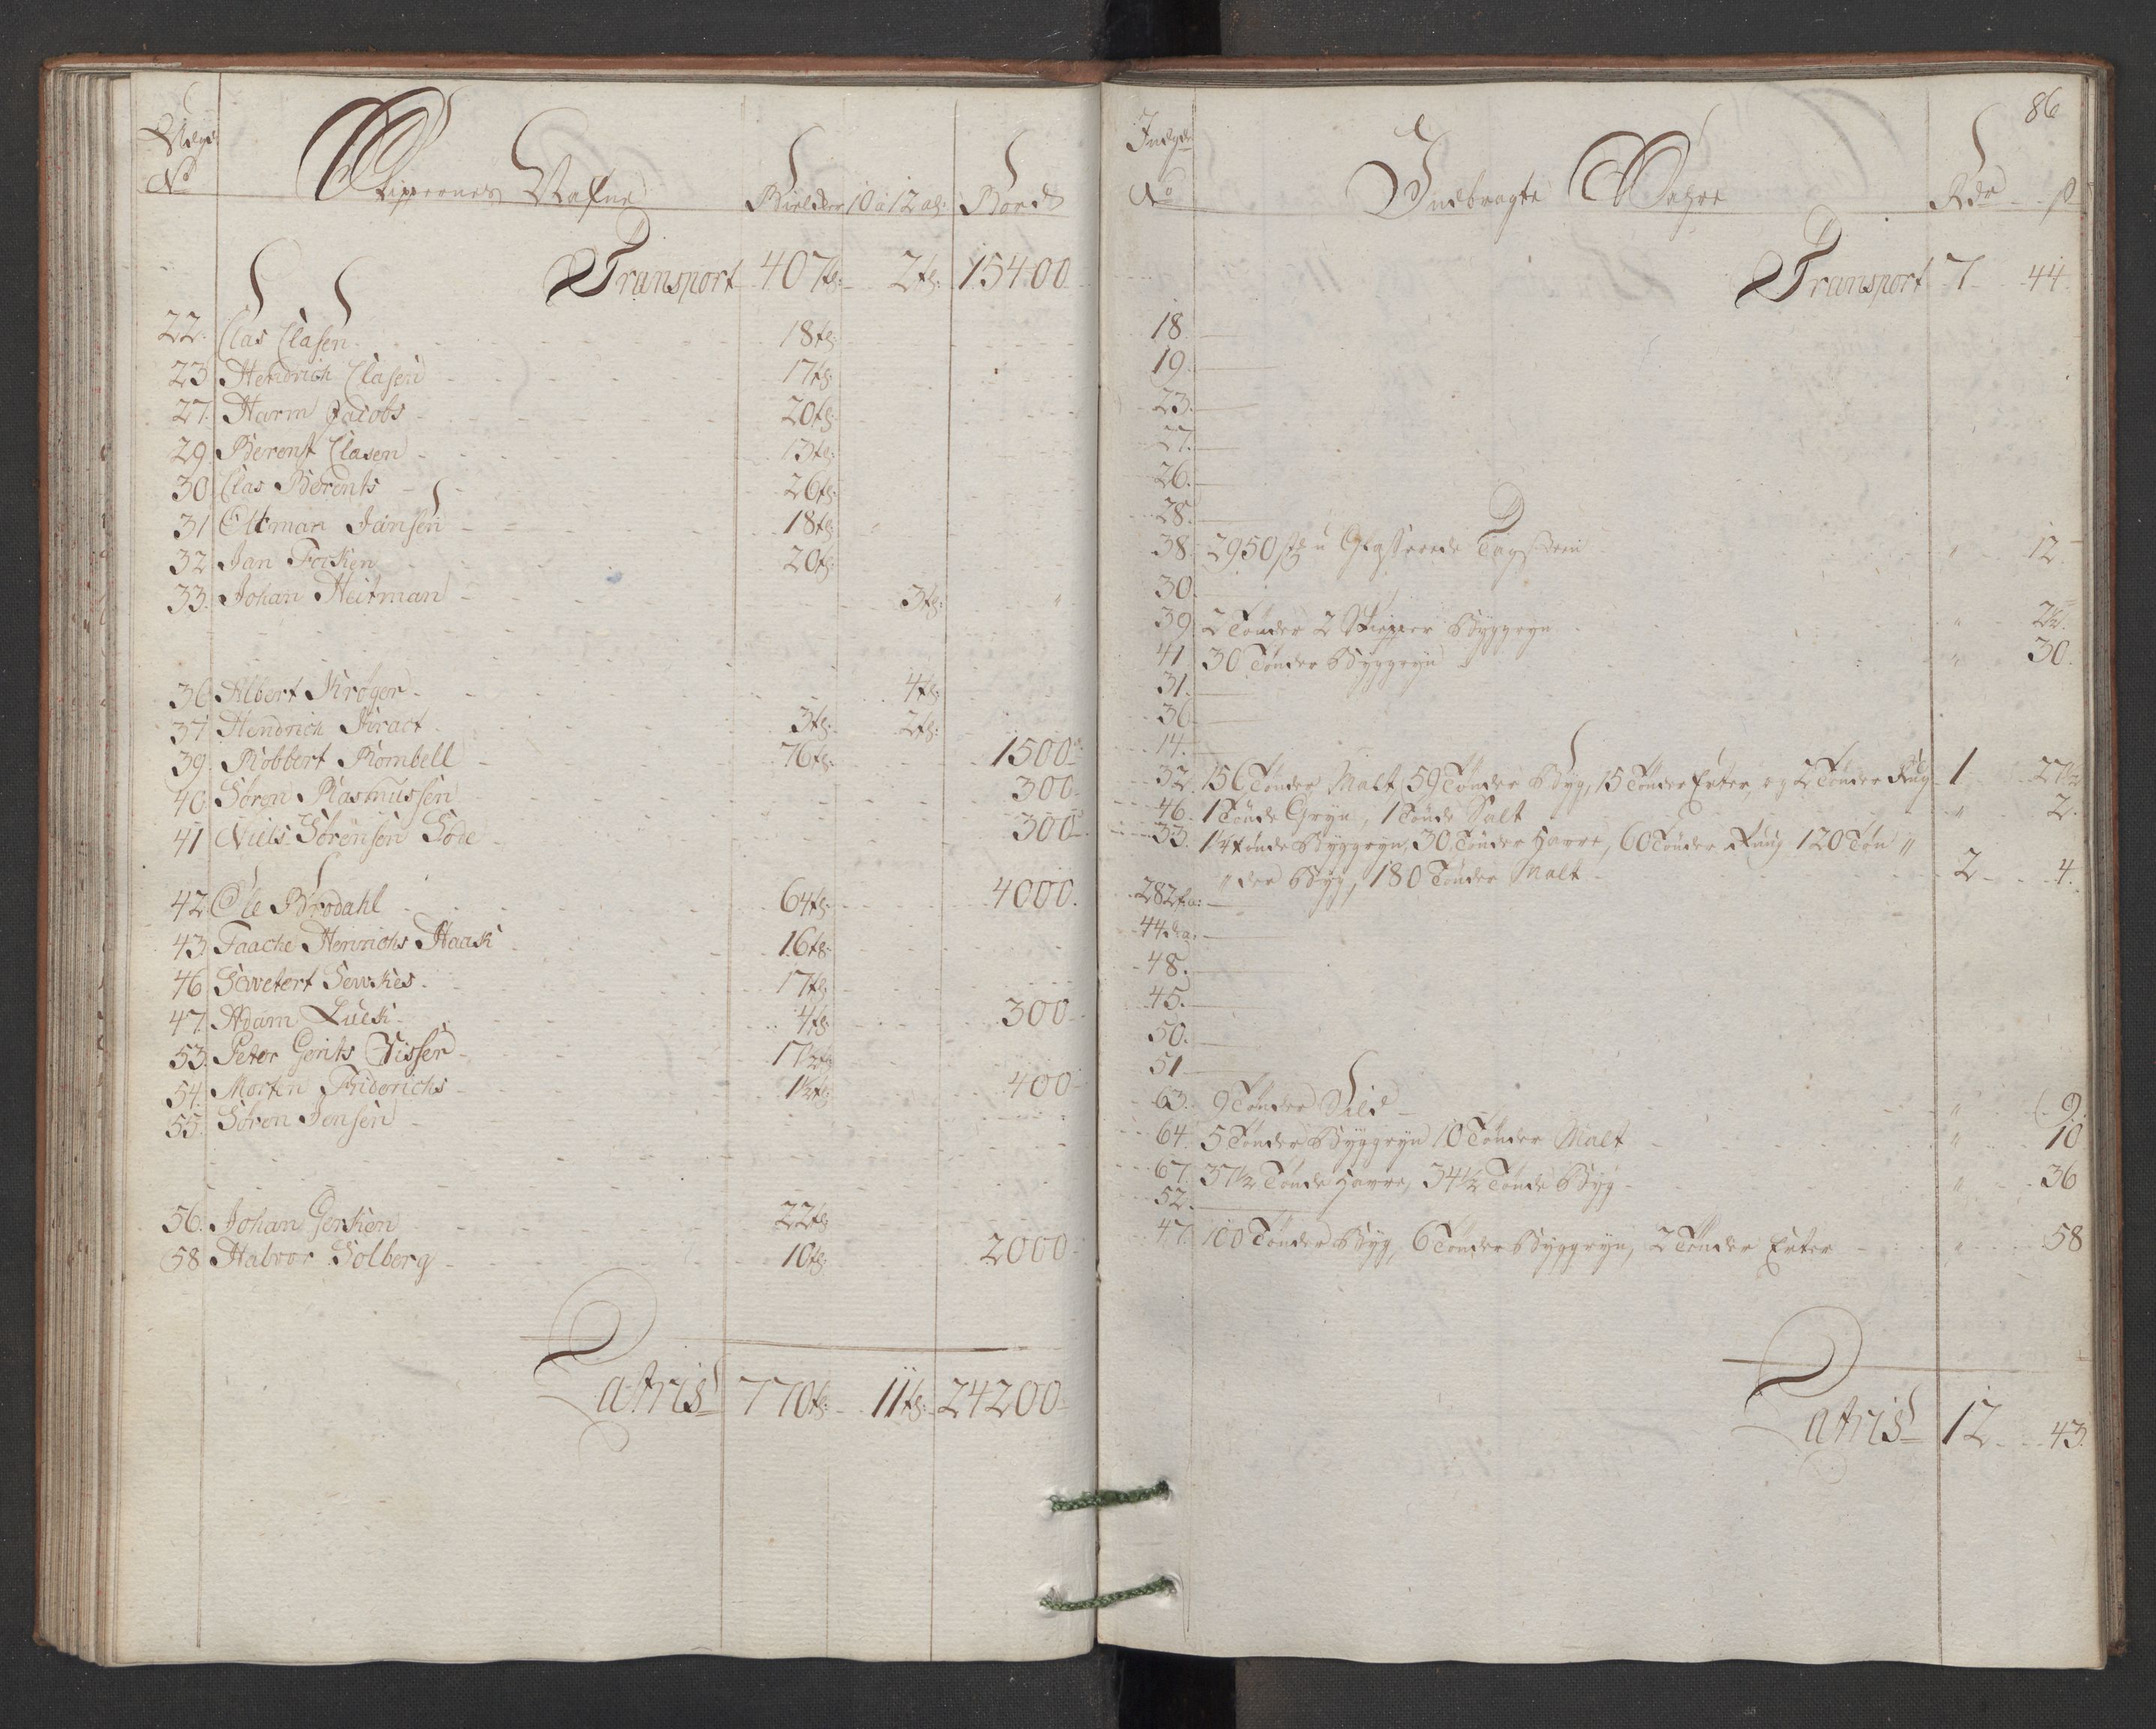 Udgds
No Skippernes Nafne Bielcker 10 a 12 al: Bord
Transport 407 tl: 2 tl: 15400
22. Clas Clasen 18 tl:
23 Hendrich Clasen 17 tl:
27. Harm Jacobs 20 tl:
29 Berent Clasen 13 tl:
30 Clas Berents 26 tl:
31 Oltman Jansen 18 tl:
32 Jan Focken 20 tl:
33. Johan Heitman 3 tl: "
36 Albert Krøger 4 tl:
37 Hendrich Kract 3 tl: 2 tl:
39 Robbert Rombell 76 tl: 1500
40 Søren Rasmussen 300
41 Niels Sørensen Bode 300
42 Ole Brodahl 64 tl: 4000.
43. Faacke Henrichs Haak 16 tl:
46 Sewetert Sewkes 17 tl:
47. Adam Luck 4 tl: 300
53. Peter Gerits Visser 17½ tl:
54. Morten Friderichs 1½ tl: 400
55. Søren Jensen
56. Johan Gerken 22 tl:
58 Halvor Solberg 10 tl: 2000
Latris 770 tl: 11 tl: 24200
86
Indgds
No Indbragte Vahre Rdr ß
Transport 7 44
18
19.
23.
27.
26.
28.
38. 2950 stk u Glasserede Tagsteen " 12
30.
39 2 Tønder 2 Skiepper Byggryn " 2½
41 30 Tønder Byggryn " 30.
31.
36
14.
32. 156 Tønder Malt, 59 Tønder Byg, 15 Tønder Erter, og 2 Tønder Rug 1 27½
46. 1 Tønde Gryn, 1 Tønde Salt " 2.
33. 1¼ tønde Byggryn, 30 Tønder Havre, 60 Tønder Rug 120 Tøn "
" der Byg, 180 Tønder Malt 2 4.
282 fra:
44 dra.
48.
45.
50.
51
63. 9 Tønder Sild " 9.
64. 5 Tønder Byggryn 10 Tønder Malt " 10
67. 37½ Tønde Havre, 34½ Tønde Byg " 36
52.
47. 100 Tønder Byg, 6 Tønder Byggryn, 2 Tønder Erter " 58
Latris 12 43.